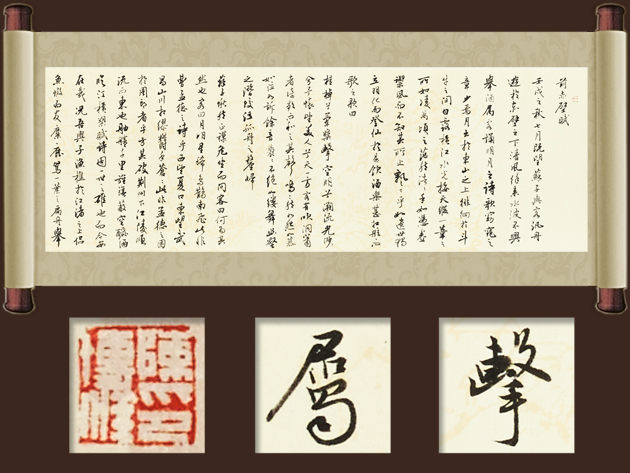 前赤壁賦
壬戌之秋七月既望蘇子與客汎舟
遊於赤壁之下清風徐來水波不興
舉酒屬客誦明月之詩歌窈窕之
章少焉月出於東山之上徘徊於斗
牛之間白露橫江水光接天縱一葦之
所如凌萬頃之茫然浩浩乎如憑虛
御風而不知其所止飄飄乎如遺世獨
立羽化而登仙於是飲酒樂甚扣舷而
歌之歌曰
桂棹兮蘭槳擊空明兮溯流光渺渺
兮予懷望美人兮天一方客有吹洞簫
者倚歌而和之其聲嗚嗚然如怨如慕
如泣如訴餘音嫋嫋不絕如縷舞幽壑
之潛蛟泣孤舟之嫠婦
蘇子愀然正襟危坐而問客曰何為其
然也客曰月明星稀烏鵲南飛此非
曹孟德之詩乎西望夏口東望武
昌山川相繆鬱乎蒼蒼此非孟德之困
於周郎者乎方其破荊州下江陵順
流而東也舳艫千里旌旗蔽空釃酒
臨江橫槊賦詩固一世之雄也而今安
在哉況吾與子漁樵於江渚之上侶
魚蝦而友麋鹿駕一葉之扁舟舉
屬
擊